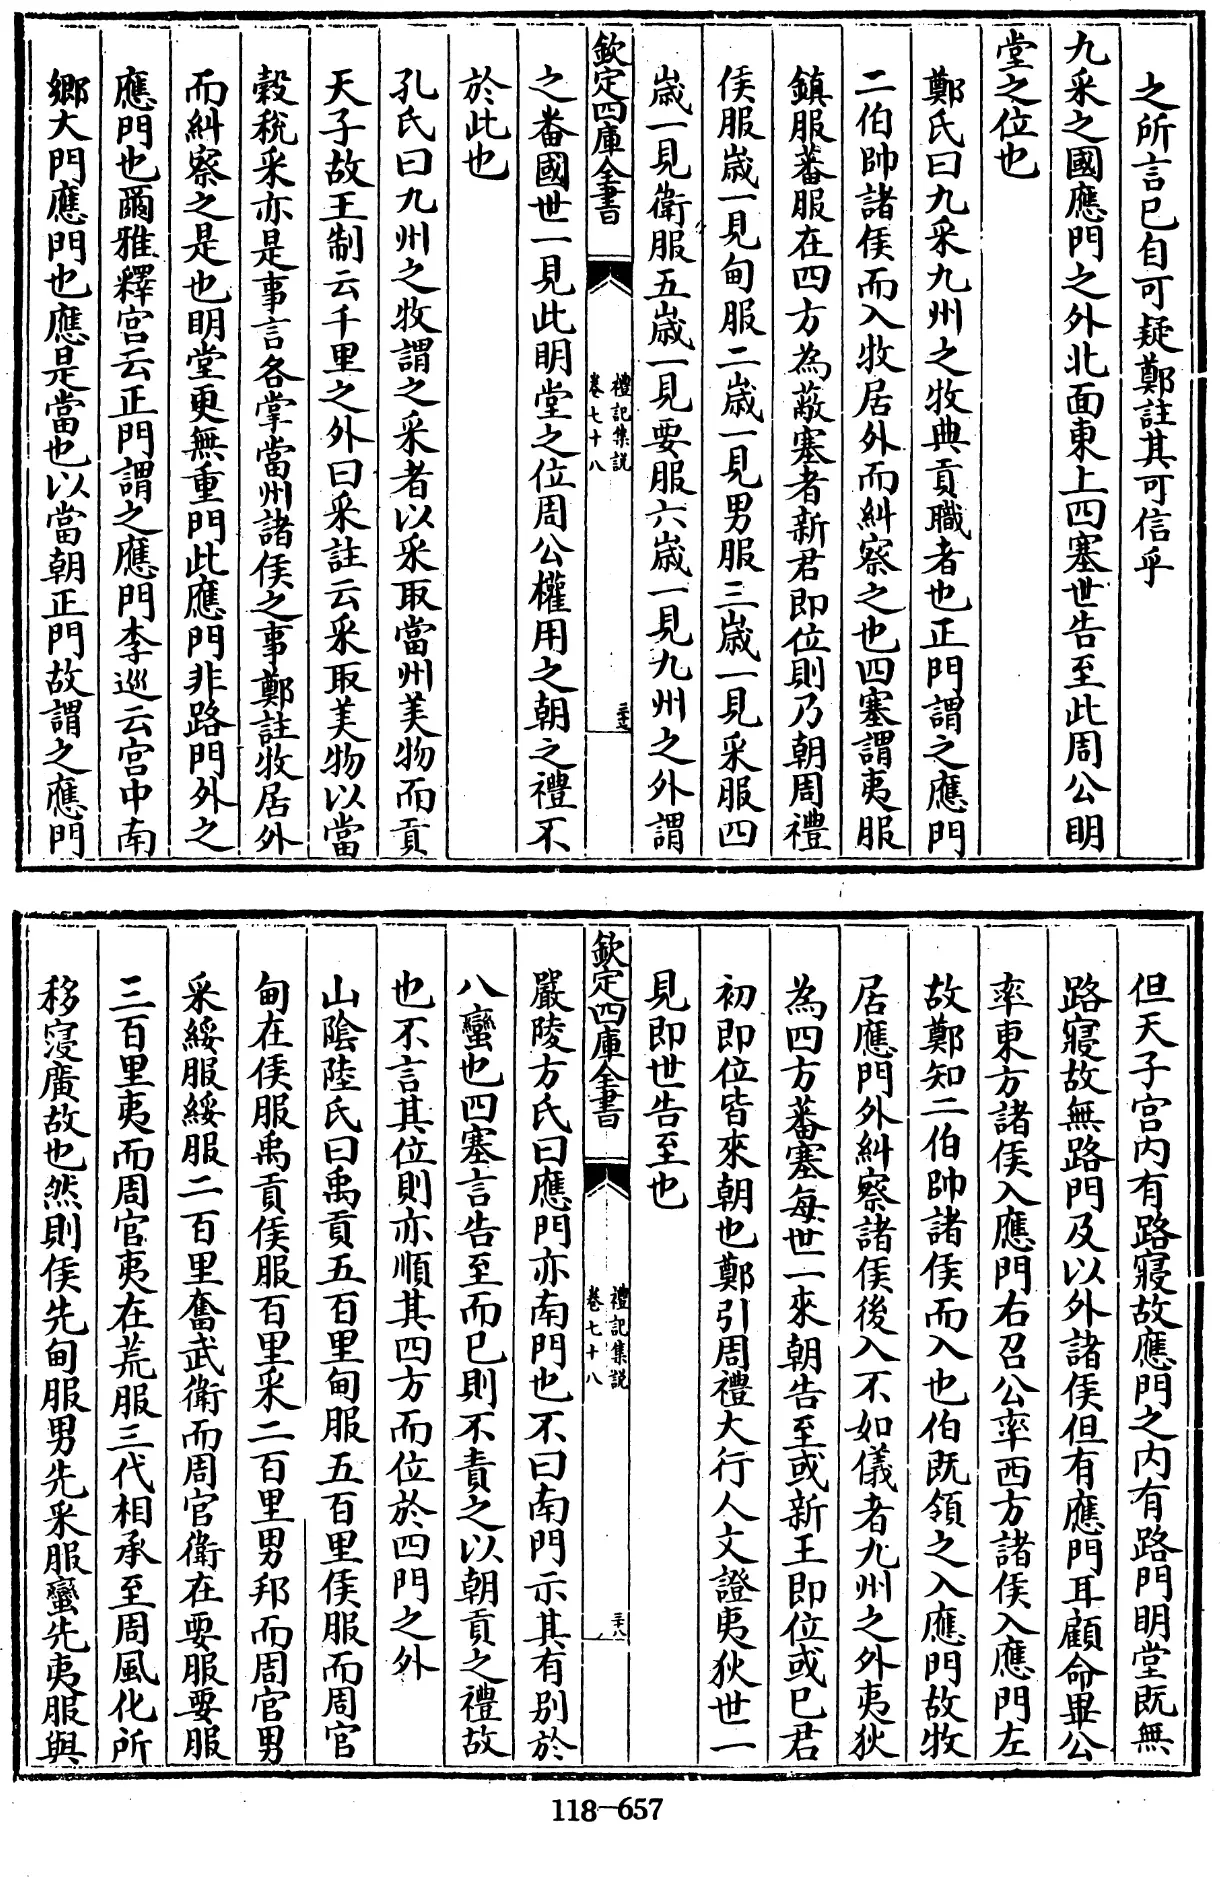 之所言已自可疑鄭註其可信乎
九采之國應門之外北面東上四塞世告至此周公明
堂之位也
鄭氏曰九采九州之牧典貢職者也正門謂之應門
二伯帥諸侯而入牧居外而糾察之也四塞謂夷服
鎮服蕃服在四方為蔽塞者新君即位則乃朝周禮
侯服歳一見甸服二歳一見男服三歳一見采服四
歳一見衛服五歳一見要服六歳一見九州之外謂
欽定四庫全書
禮記集説
卷七十八
之畨國世一見此明堂之位周公權用之朝之禮不
於此也
孔氏曰九州之牧謂之采者以采取當州美物而貢
天子故王制云千里之外曰采註云采取美物以當
穀稅采亦是事言各掌當州諸侯之事鄭註牧居外
而糾察之是也明堂更無重門此應門非路門外之
應門也爾雅釋宮云正門謂之應門李巡云宮中南
鄉大門應門也應是當也以當朝正門故謂之應門
但天子宮内有路寢故應門之内有路門明堂既無
路寢故無路門及以外諸侯但有應門耳顧命畢公
率東方諸侯入應門右召公率西方諸侯入應門左
故鄭知二伯帥諸侯而入也伯既領之入應門故牧
居應門外糾察諸侯後入不如儀者九州之外夷狄
為四方蕃塞每世一來朝告至或新王即位或已君
初即位皆來朝也鄭引周禮大行人文證夷狄世一
見即世告至也
欽定四庫全書
禮記集説
卷七十八
三十八
嚴陵方氏曰應門亦南門也不曰南門示其有别於
八蠻也四塞言告至而已則不責之以朝貢之禮故
也不言其位則亦順其四方而位於四門之外
山陰陸氏曰禹貢五百里甸服五百里侯服而周官
甸在侯服禹貢侯服百里采二百里男邦而周官男
采綏服綏服二百里奮武衛而周官衛在要服要服
三百里夷而周官夷在荒服三代相承至周風化所
移寖廣故也然則侯先甸服男先采服蠻先夷服與
118-657